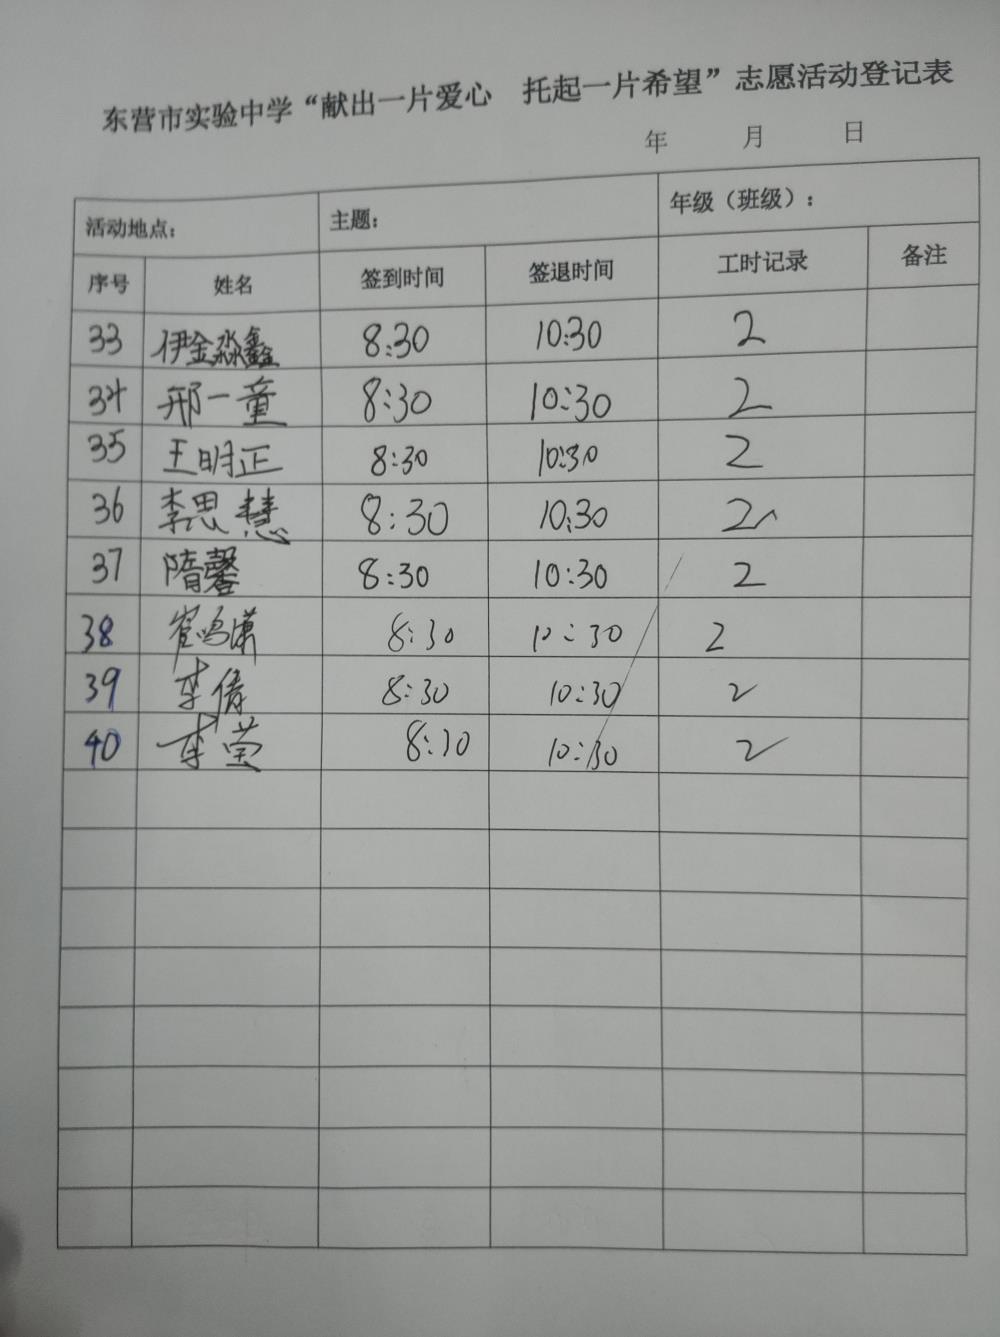 东营市实验中学“献出一片爱心 托起一片希望”志愿活动登记表
年 月 日
活动地点： 主题： 年级（班级）：
序号 姓名 签到时间 签退时间 工时记录 备注
33 伊金淼鑫 8:30 10:30 2
34 邢一童 8:30 10:30 2
35 王明正 8:30 10:30 2
36 李思慧 8:30 10:30 2
37 隋馨 8:30 10:30 2
38 崔鸣潇 8:30 10:30 2
39 李倩 8:30 10:30 2
40 李莹 8:30 10:30 2